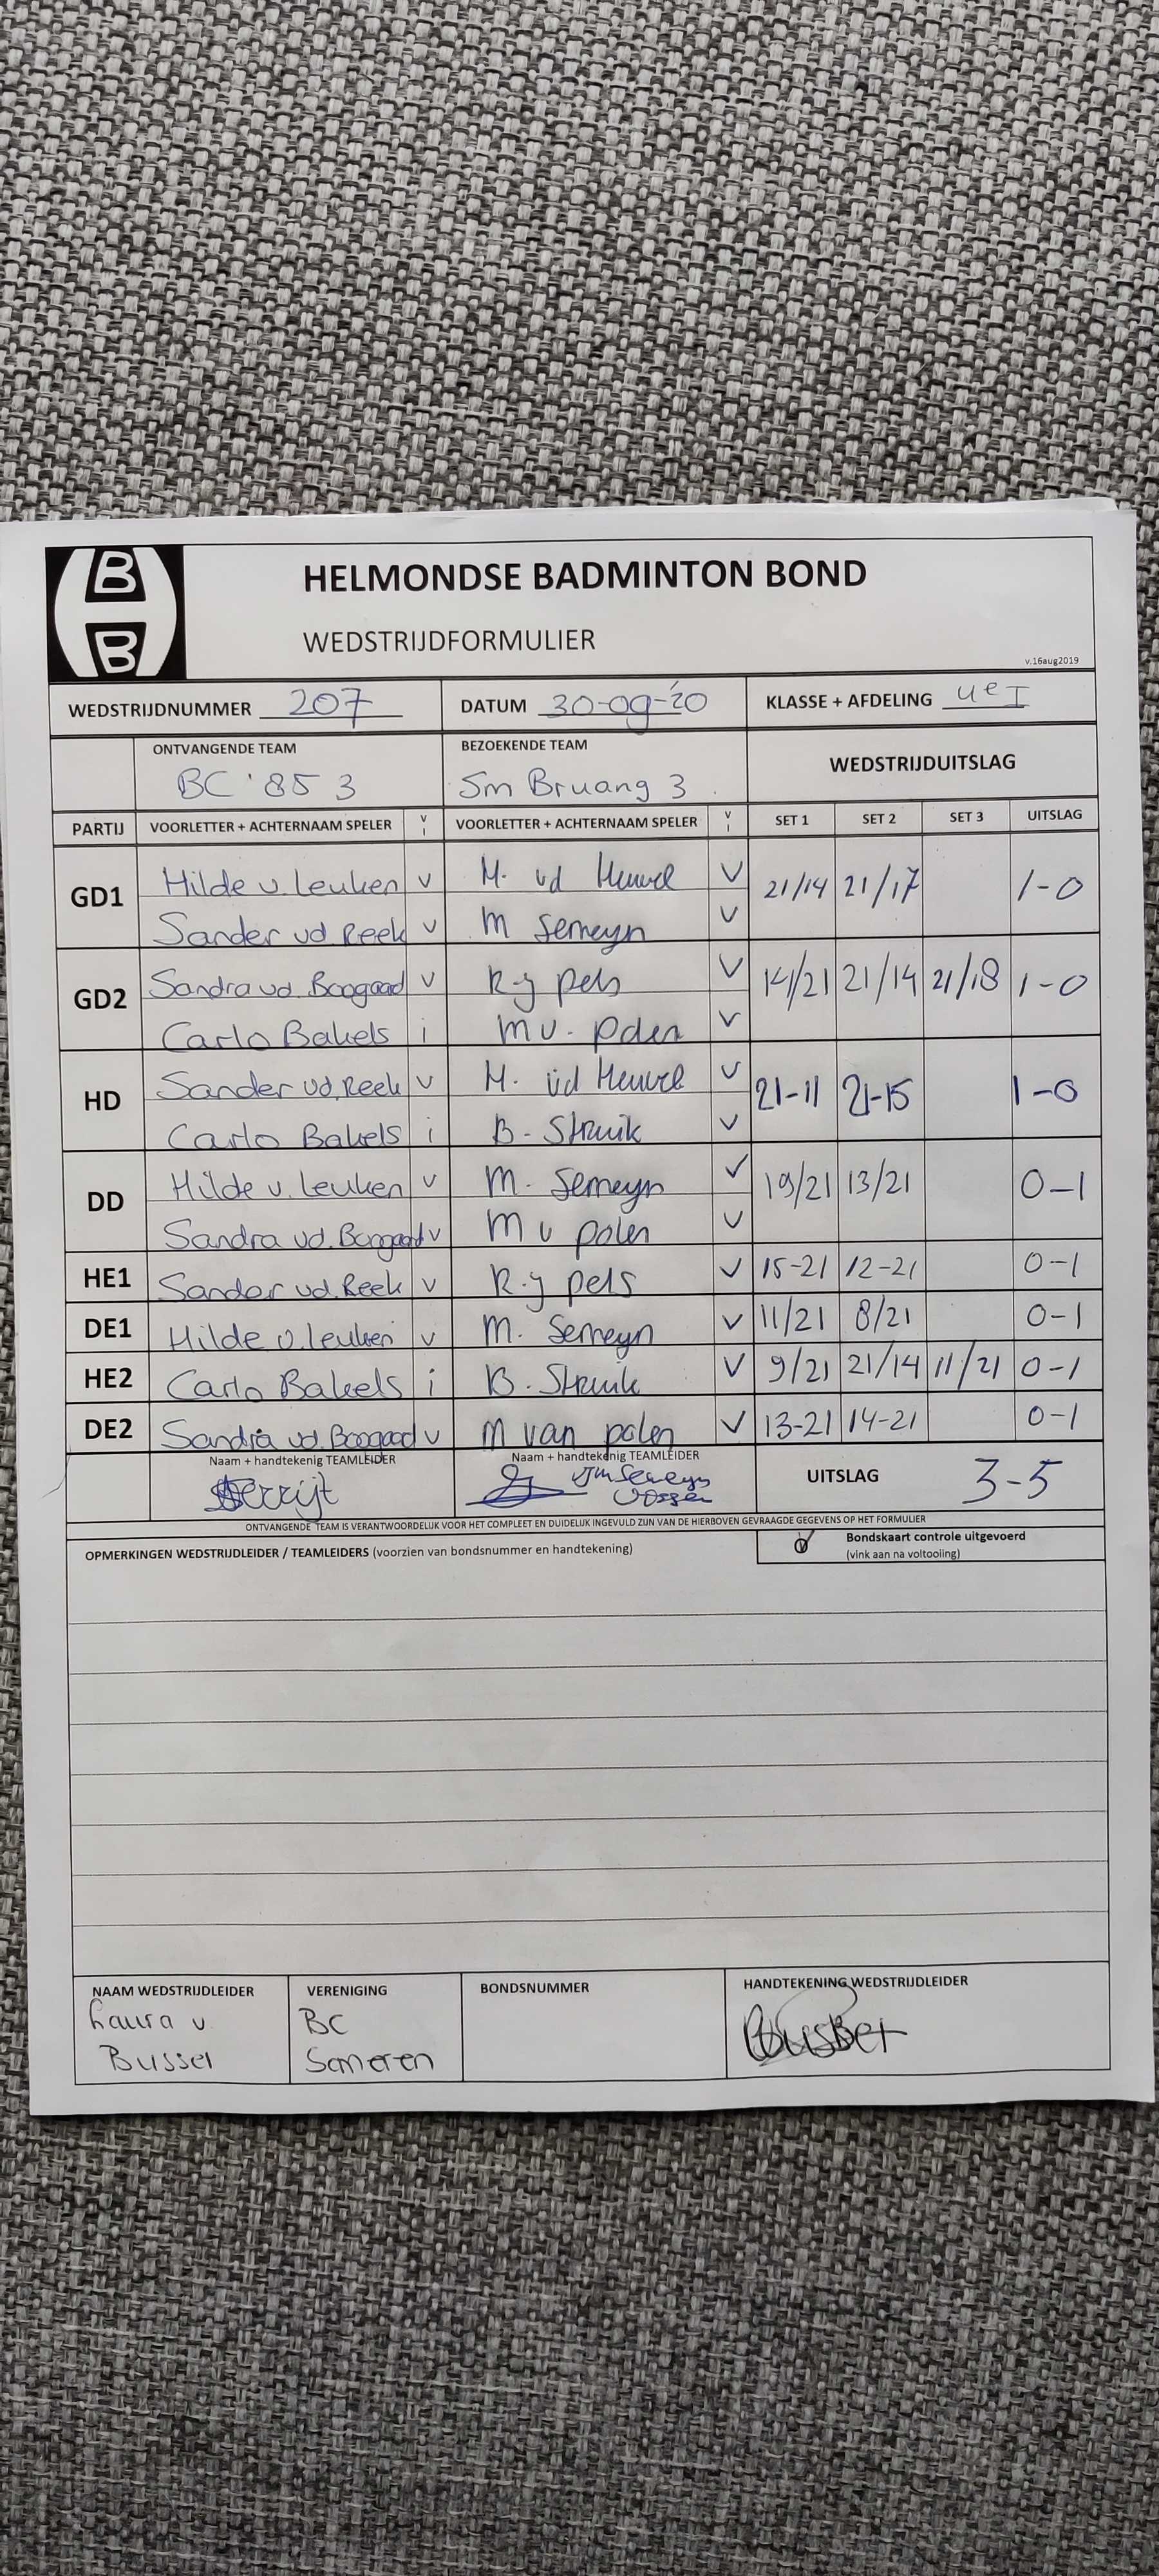 B
B
HELMONDSE BADMINTON BOND
WEDSTRIJDFORMULIER
v.16aug2019
WEDSTRIJDNUMMER 207 DATUM 30-09-'20 KLASSE + AFDELING 4e I
ONTVANGENDE TEAM BEZOEKENDE TEAM WEDSTRIJDUITSLAG
BC '85 3 Sm Bruang 3
PARTIJ VOORLETTER + ACHTERNAAM SPELER V I VOORLETTER + ACHTERNAAM SPELER V I SET 1 SET 2 SET 3 UITSLAG
GD1 Hilde v. Leuken v M. vd Heuvel V 21/14 21/17 1-0
Sander vd. Reek v M Semeyn V
GD2 Sandra vd. Boogaad v R-j pels V 14/21 21/14 21/18 1-0
Carlo Bakels i M v. polen V
HD Sander vd. Reek v M. vd Heuvel V 21-11 21-15 1-0
Carlo Bakels i B. Struik V
DD Hilde v. Leuken v M. Semeyn V 19/21 13/21 0-1
Sandra vd. Boogaad v M v polen V
HE1 Sander vd. Reek v R-j pels V 15-21 12-21 0-1
DE1 Hilde v. Leuken v M. Semeyn V 11/21 8/21 0-1
HE2 Carlo Bakels i B. Struik V 9/21 21/14 11/21 0-1
DE2 Sandra vd. Boogaad v M van polen V 13-21 14-21 0-1
Naam + handtekenig TEAMLEIDER Naam + handtekenig TEAMLEIDER
UITSLAG 3-5
ONTVANGENDE TEAM IS VERANTWOORDELIJK VOOR HET COMPLEET EN DUIDELIJK INGEVULD ZIJN VAN DE HIERBOVEN GEVRAAGDE GEGEVENS OP HET FORMULIER
OPMERKINGEN WEDSTRIJDLEIDER / TEAMLEIDERS (voorzien van bondsnummer en handtekening) Bondskaart controle uitgevoerd
(vink aan na voltooiing)
NAAM WEDSTRIJDLEIDER VERENIGING BONDSNUMMER HANDTEKENING WEDSTRIJDLEIDER
Laura v BC
Bussel Someren